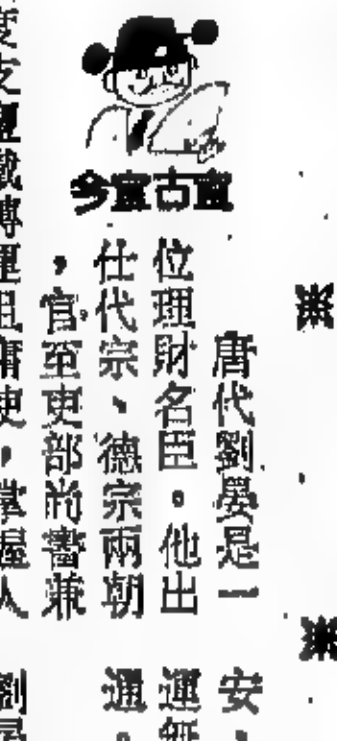 唐代劉晏是一
位理財名臣。他出
仕代宗、德宗兩朝
,官至吏部尚書兼
度支鹽鐵轉運租庸使,掌握人
安,
運無
通。
劉晏